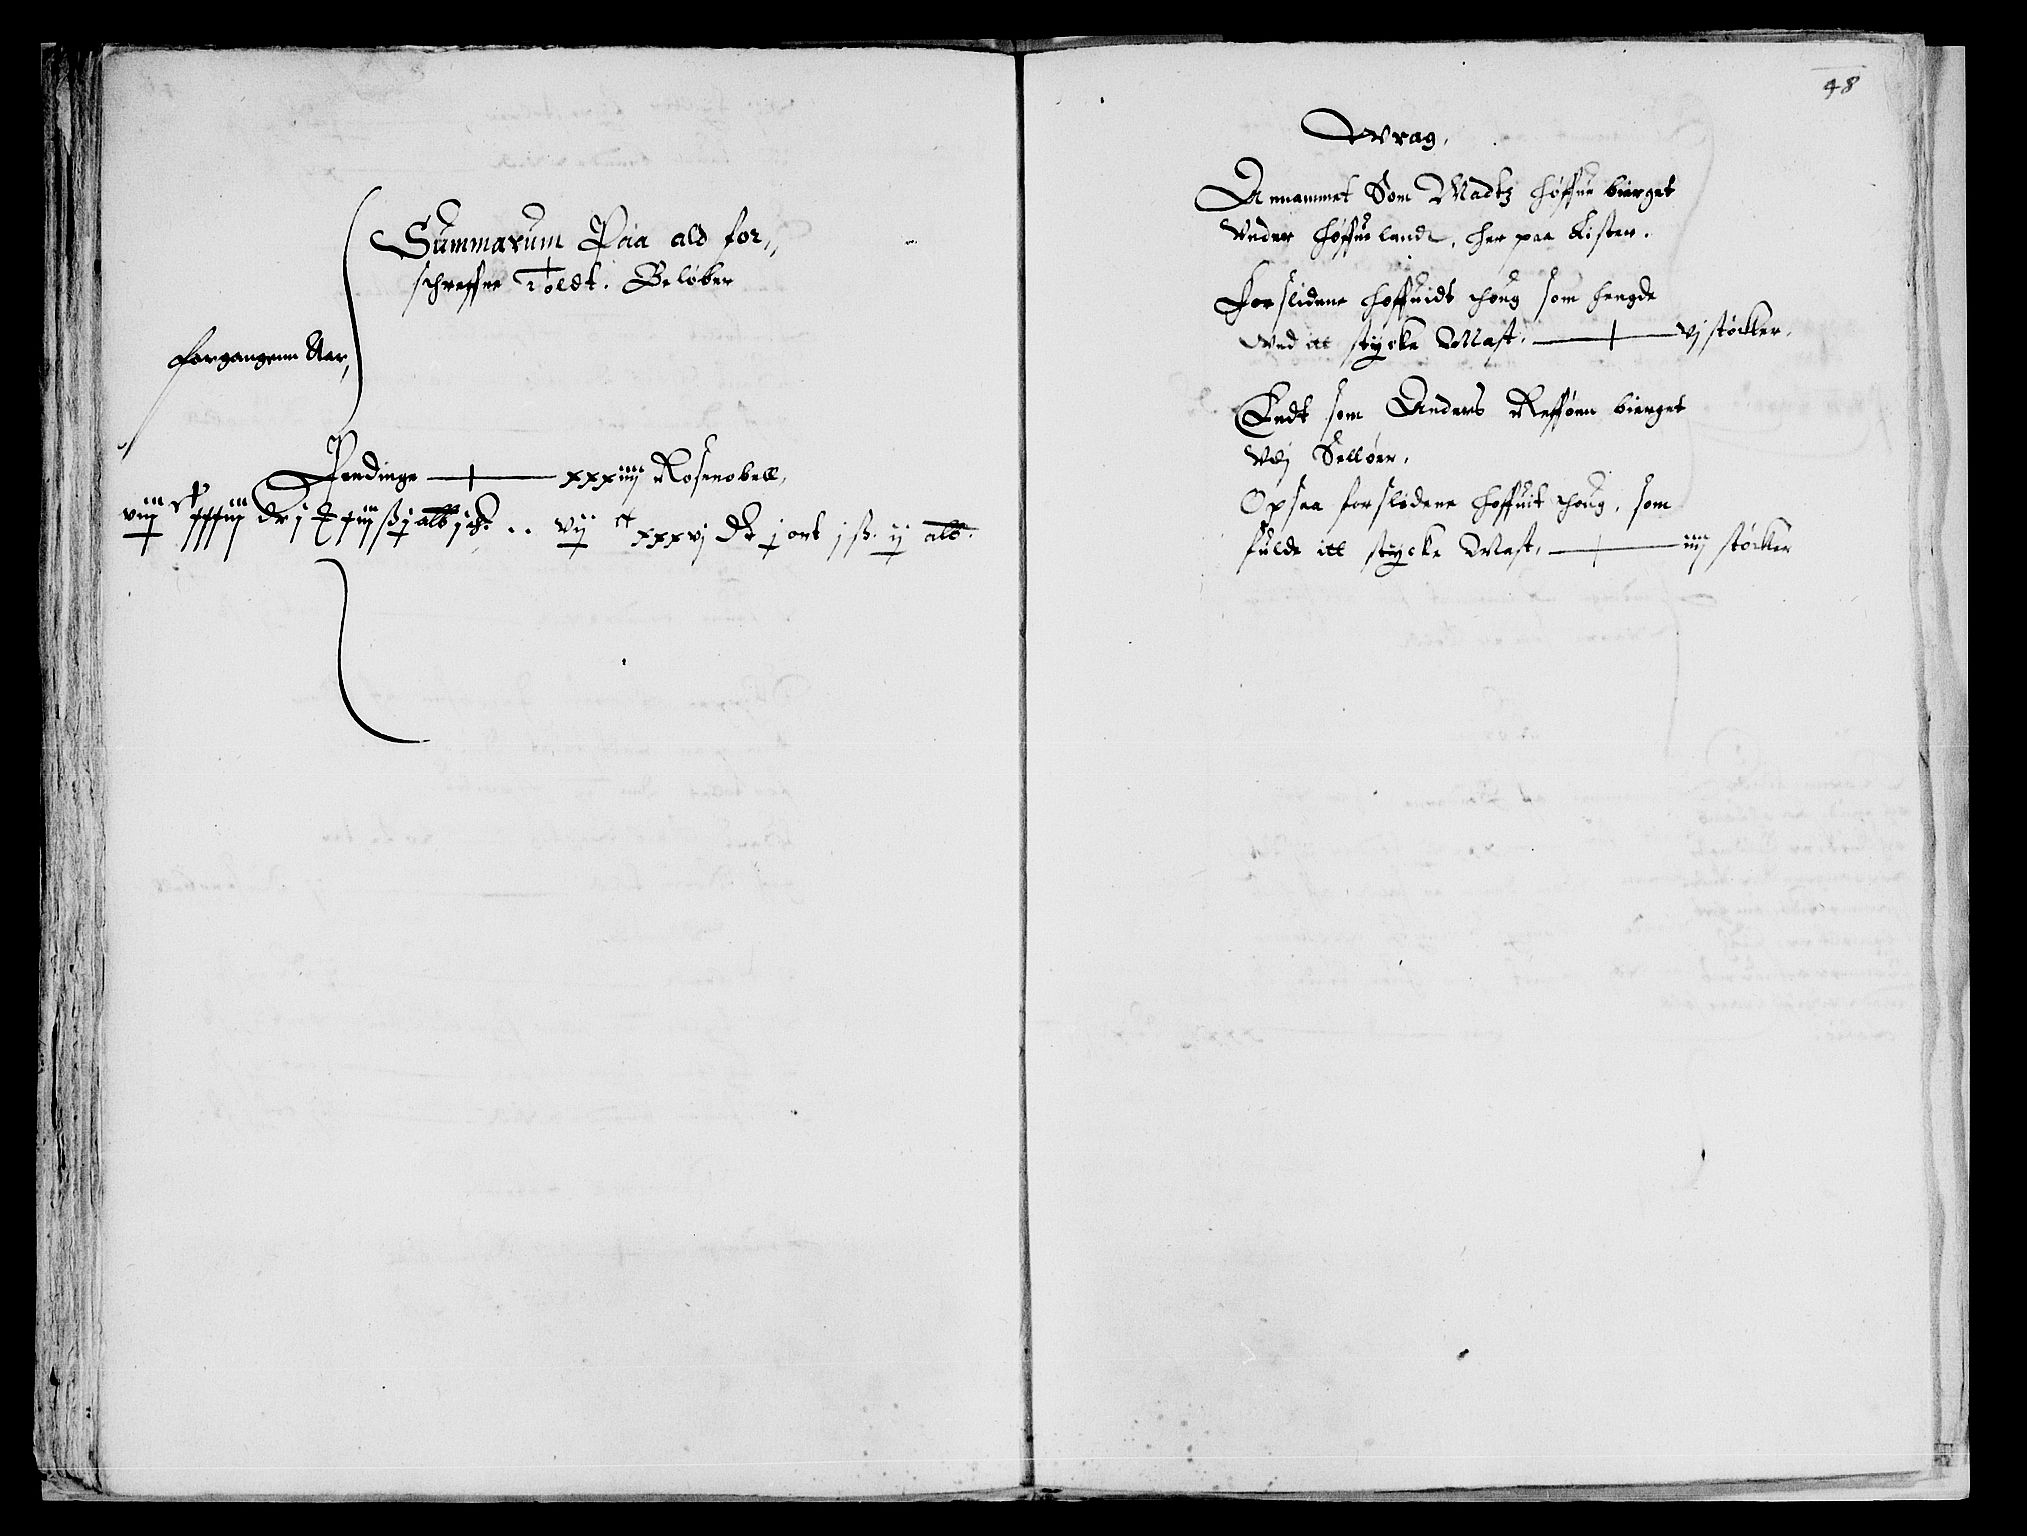 Summarum Paa ald for,,
schreffne Toldt. Beløber
forgangenn Aar,
Pendinge xxxiiij Rosenobell,
viij ct xxxiij dr j iiij ß j alb j ch: .. vij ct xxxvj dr j ort j ß. ij alb.
48
Wrag,
Annammet Som Madtz Høffue bierget
Vnder Høffuelandt, her paa Listen.
Forslidene hoffuidt thoug som hengde
Wed itt stycke Mast. vj støcker.
Endt som Anders Reffsøen bierget
Vdj Selløer,
Opsaa forslidene hoffuit thoug, som
fulde itt stycke Mast, iiij støcker